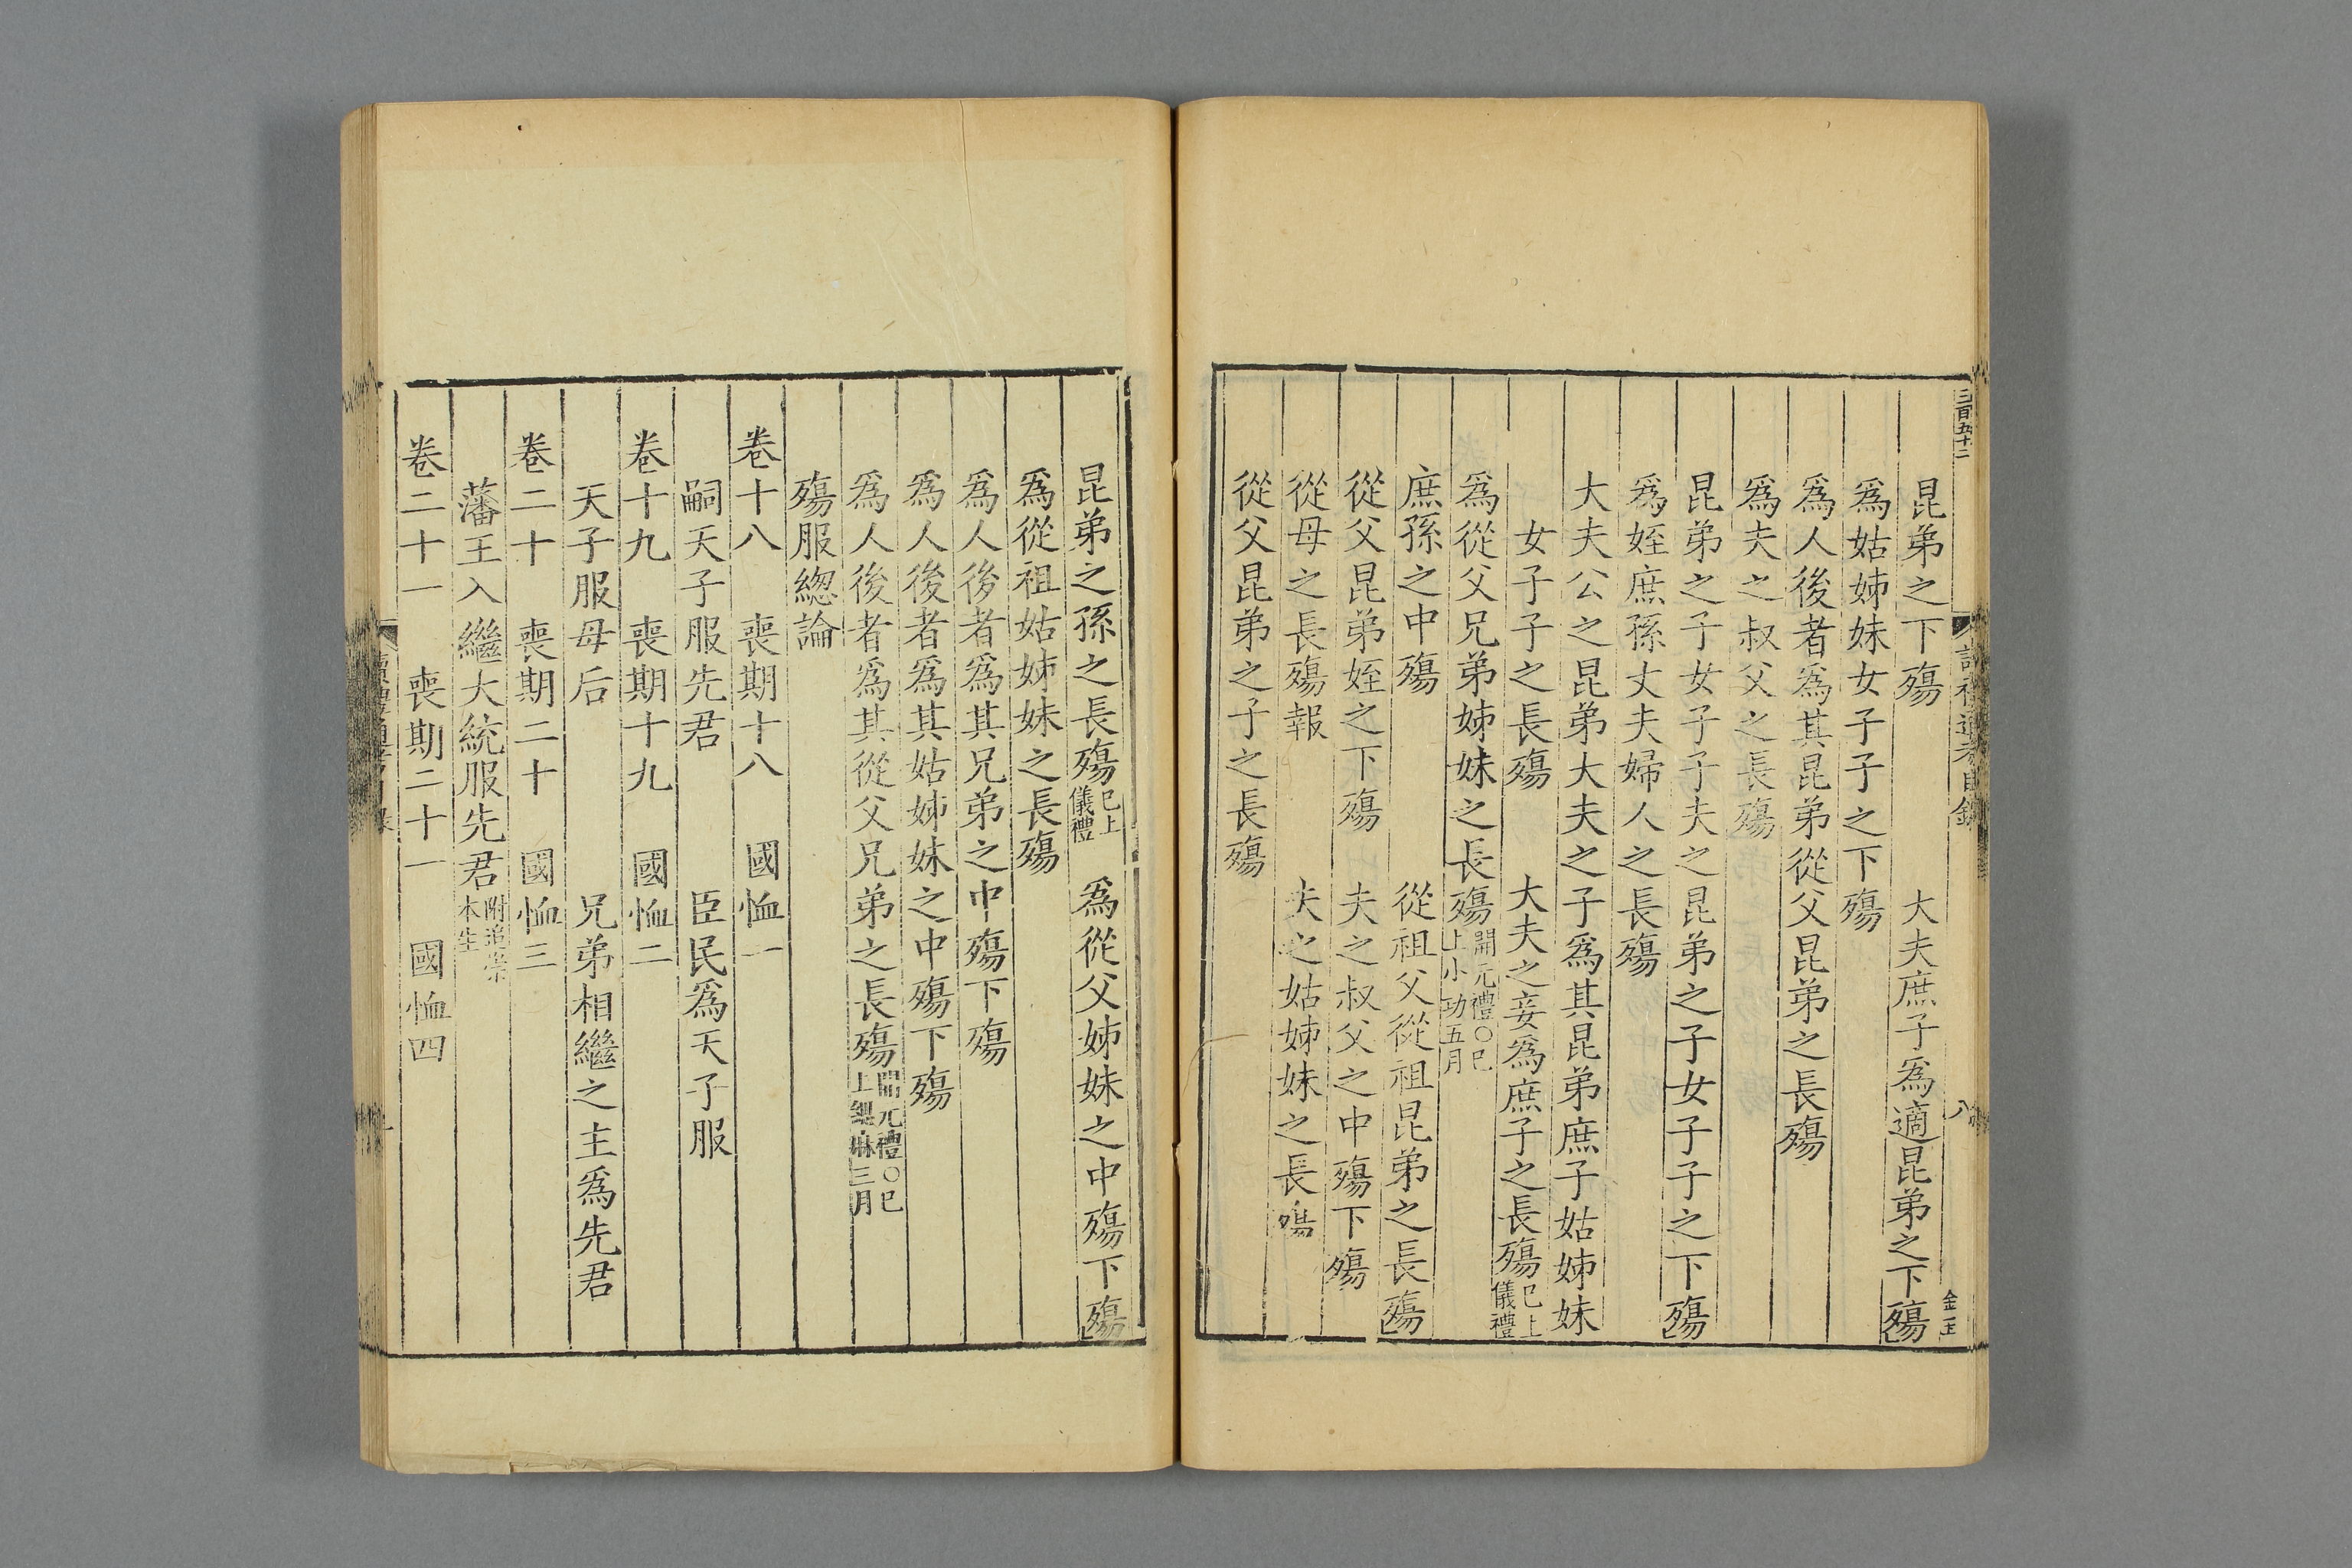 三百五十二
讀禮通考目錄
八
昆弟之下殤　大夫庶子爲適昆弟之下殤
爲姑姊妹女子子之下殤
爲人後者爲其昆弟從父昆弟之長殤
爲夫之叔父之長殤
昆弟之子女子子夫之昆弟之子女子子之下殤
爲姪庶孫丈夫婦人之長殤
大夫公之昆弟大夫之子爲其昆弟庶子姑姊妹
女子子之長殤　大夫之妾爲庶子之長殤已上儀禮
爲從父兄弟姊妹之長殤開元禮○已上小功五月
庶孫之中殤　從祖父從祖昆弟之長殤
從父昆弟姪之下殤　夫之叔父之中殤下殤
從母之長殤報　夫之姑姊妹之長殤
從父昆弟之子之長殤
昆弟之孫之長殤已上儀禮　爲從父姊妹之中殤下殤
爲從祖姑姊妹之長殤
爲人後者爲其兄弟之中殤下殤
爲人後者爲其姑姊妹之中殤下殤
爲人後者爲其從父兄弟之長殤開元禮○已上緦麻三月
殤服緫論
卷十八　喪期十八　國恤一
嗣天子服先君　臣民爲天子服
卷十九　喪期十九　國恤二
天子服母后　兄弟相繼之主爲先君
卷二十　喪期二十　國恤三
藩王入繼大統服先君附追崇本生
卷二十一　喪期二十一　國恤四